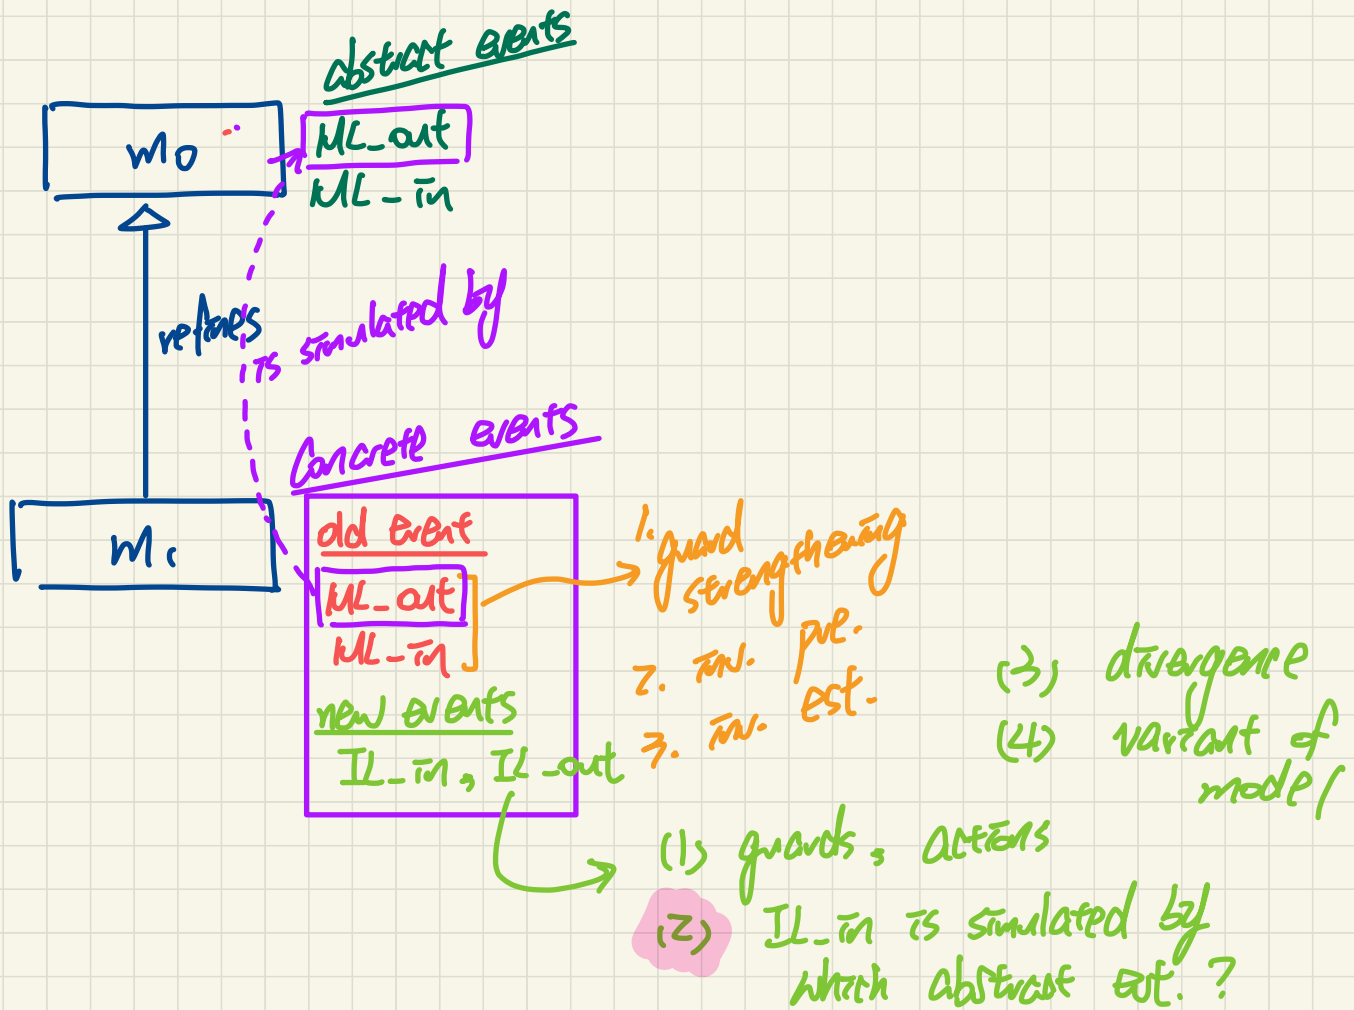 abstract events
m0
ML_out
ML_in
refines
is simulated by
Concrete events
m1
old event
ML_out
ML_in
new events
IL_in, IL_out
1. guard
strengthening
2. inv. pre.
3. inv. est.
(3) divergence
(4) variant of
model
(1) guards, actions
(2) IL_in is simulated by
which abstract evt.?